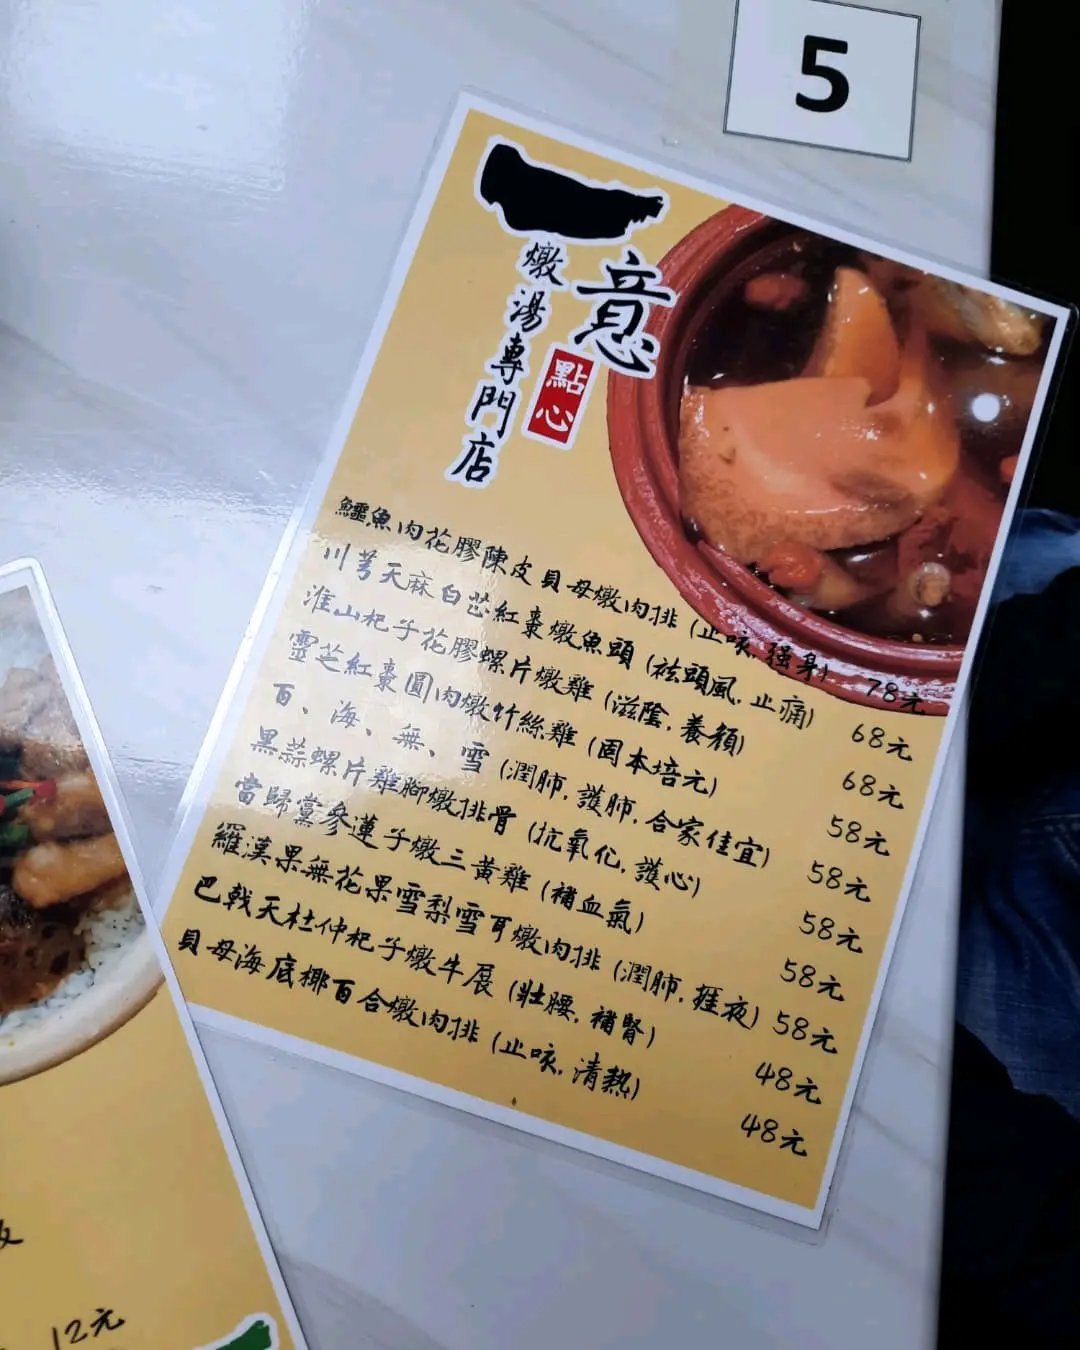 5
一意
點心
燉湯專門店
鱷魚肉花膠陳皮貝母燉肉排 (止咳, 强身) 78元
川芎天麻白芷紅棗燉魚頭 (祛頭風, 止痛) 68元
淮山杞子花膠螺片燉雞 (滋陰, 養顏) 68元
靈芝紅棗圓肉燉竹絲雞 (固本培元) 58元
百、海、無、雪 (潤肺, 護肺, 合家佳宜) 58元
黑蒜螺片雞腳燉排骨 (抗氧化, 護心) 58元
當歸黨參蓮子燉三黃雞 (補血氣) 58元
羅漢果無花果雪梨雪耳燉肉排 (潤肺, 捱夜) 58元
巴戟天杜仲杞子燉牛展 (壯腰, 補腎) 48元
貝母海底椰百合燉肉排 (止咳, 清熱) 48元
12元